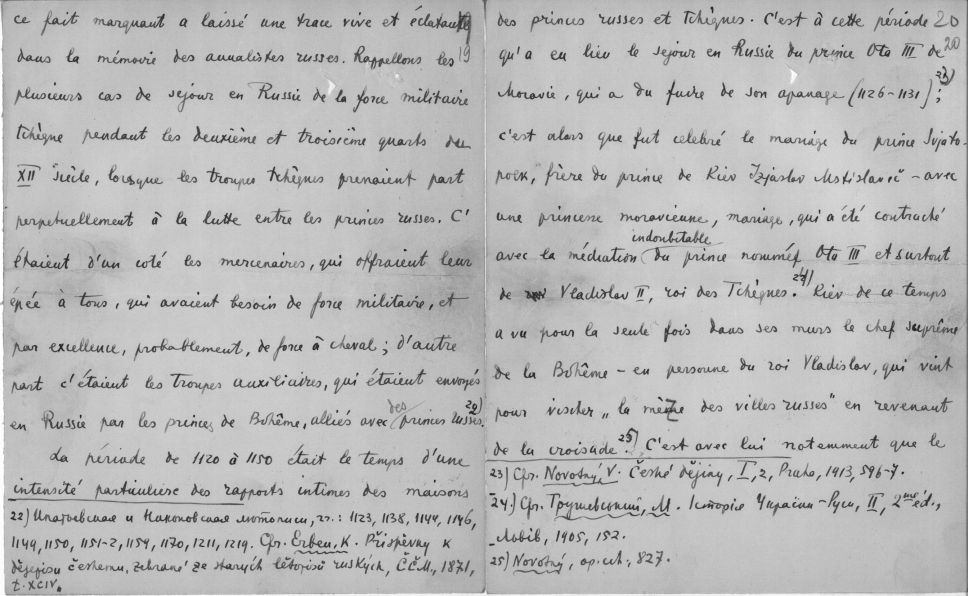 ce fait marquant a laissé une trace vive et éclatante
19
dans la mémoire des annalistes russes. Rappellons les
19
plusieurs cas de sejour en Russie de la force militaire
tchèque pendant les deuxième et troisième quarts du
XII siècle, lorsque les troupes tchèques prenaient part
perpetuellement à la lutte entre les princes russes. C'
étaient d'un coté les mercenaires, qui offraient leur
épée à tous, qui avaient besoin de force militaire, et
par excellence, probablement, de force à cheval; d'autre
part c'étaient les troupes auxiliaires, qui étaient envoyés
en Russie par les princes de Bohême, alliés avec des princes russes. 22)
La période de 1120 à 1150 était le temps d'une
intensité particulière des rapports intimes des maisons
22) Ипатьевская и Никоновская летописи, гг.: 1123, 1138, 1144, 1146,
1149, 1150, 1151-2, 1154, 1170, 1211, 1219. Cfr. Erben, K. Přispěvky k
dějepisu českemu, zebrané ze starých lětopisů ruských, ČČM., 1871,
t. XCIV.
des princes russes et tchèques. C'est à cette période
20
qu'a eu lieu le sejour en Russie du prince Ota III de
20
Moravie, qui a du fuire de son apanage (1126-1131) 23);
c'est alors que fut celebré le mariage du prince Svjato-
polk, frère du prince de Kiev Izjaslav Mstislavič - avec
une princesse moravienne, mariage, qui a été contracté
avec la médiation indoubitable du prince nommé Ota III et surtout
de Vladislav II, roi des Tchèques. 24) Kiev de ce temps
a vu pour la seule fois dans ses murs le chef suprême
de la Bohême - en personne du roi Vladislav, qui vint
pour visiter „la mère des villes russes" en revenant
de la croisade. 25) C'est avec lui notemment que le
23) Cfr. Novotný, V. České dějiny, I, 2, Praha, 1913, 596-7.
24) Cfr. Грушевський, М. Історія України-Руси, II, 2me éd.,
Львів, 1905, 152.
25) Novotný, op. cit., 827.